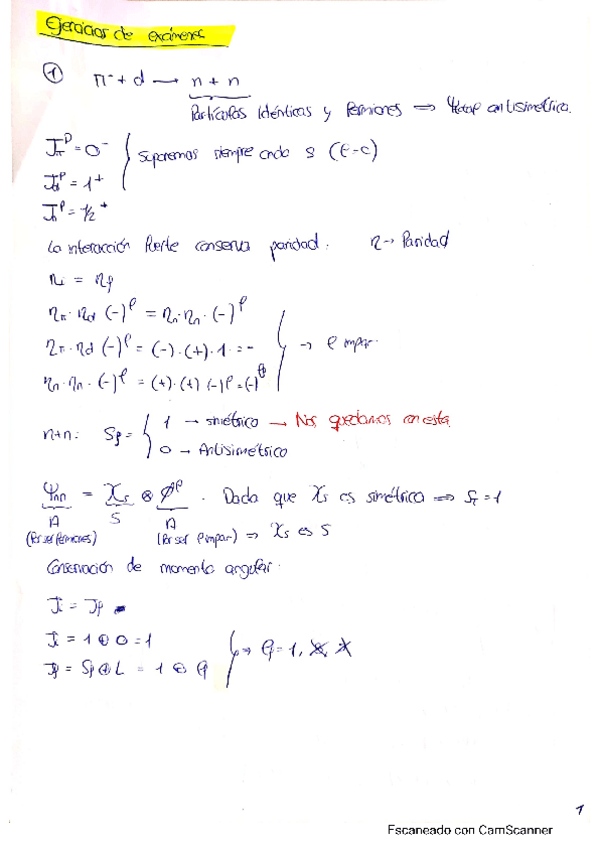 Ejercicios de exámenes
① π⁻ + d → n + n
Partículas Idénticas y Fermiones ⇒ antisimétrica.
J_π^P = 0⁻
Suponemos siempre onda S (ℓ=0)
J_d^P = 1⁺
J_n^P = 1/2⁺
La interacción fuerte conserva paridad. η → Paridad
η_i = η_f
η_π · η_d (-)^ℓ = η_n · η_n · (-)^ℓ
η_π · η_d (-)^ℓ = (-) · (+) · 1 = -
→ ℓ impar.
η_n · η_n · (-)^ℓ = (+) · (+) (-)^ℓ = (-)^ℓ
n+n: S_f = { 1 → simétrico → Nos quedamos con esta
0 → Antisimétrico
Ψ_nn = χ_s ⊗ φ^ℓ . Dado que χ_s es simétrica ⇒ S_f = 1
A S A
(Por ser fermiones) (Por ser ℓ impar) ⇒ χ_s es S
Conservación de momento angular.
J_i = J_f
J_i = 1 ⊕ 0 = 1
→ ℓ_f = 1,
J_f = S_f ⊕ L = 1 ⊕ ℓ_f
1
Escaneado con CamScanner